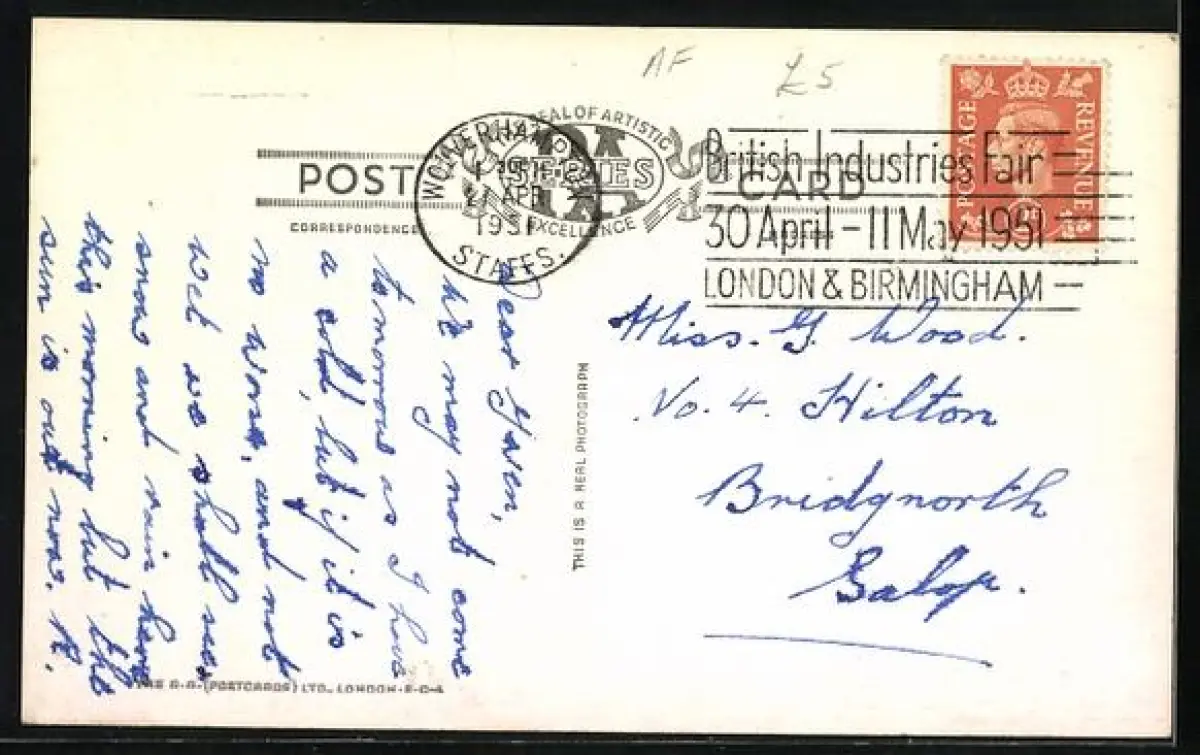 AF £5
POSTAGE REVENUE
SEAL OF ARTISTIC
SERIES
EXCELLENCE
POST CARD
CORRESPONDENCE
WOLVERHAMPTON
27 APR
1951
STAFFS.
British Industries Fair
30 April - 11 May 1951
LONDON & BIRMINGHAM
Dear Gwen,
We may not come
tomorrow as I have
a cold, but if it is
no worse, and not
wet we shall see.
snow and rain here
this morning but the
sun is out now. K.
THIS IS A REAL PHOTOGRAPH
Miss. G. Wood.
No. 4. Hilton
Bridgnorth
Salop.
(POSTCARDS) LTD., LONDON-E-C-4